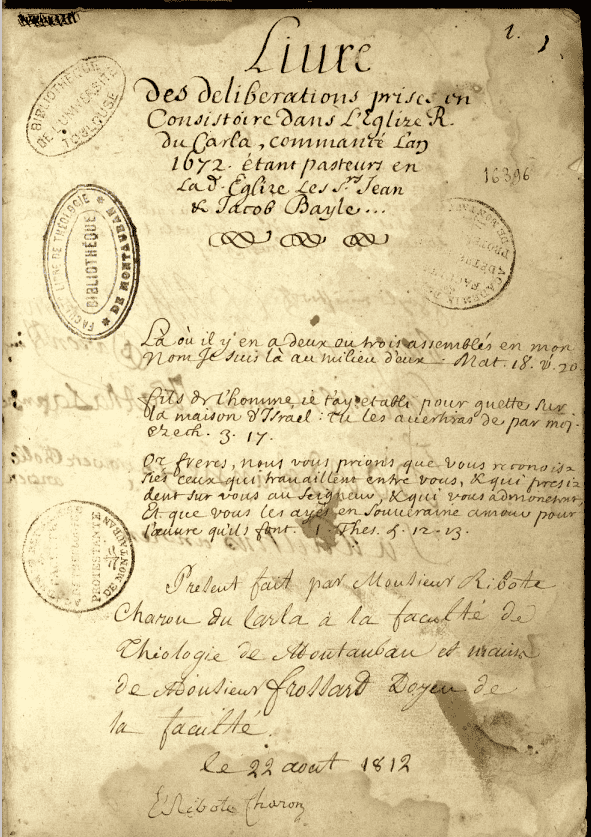 1.
Liure
Des deliberations prises en
Consistoire Dans L'Eglize R.
du Carla, commanté L'an
1672. étant pasteurs en
La d. Eglize Les Srs Jean
& Jacob Bayle...
16396
BIBLIOTHEQUE
DE L'UNIVERSITÉ
TOULOUSE
FACULTÉ LIBRE DE THÉOLOGIE
DE MONTAUBAN
BIBLIOTHÈQUE
Là où il y'en a deux ou trois assemblés en mon
Nom Je suis là au milieu d'eux. Mat. 18. v. 20
fils de l'homme ie t'ay etabli pour guette sur
la maison d'Israel: tu les auertiras de par moy
ezech. 3. 17.
Or freres, nous vous prions que vous reconois=
siés ceux qui trauaillent entre vous, & qui presi=
dent sur vous au Seigneur, & qui vous admonetent,
Et que vous les ayés en Souueraine amour pour
l'œuure qu'ils font. 1. Thes. 5. 12-13.
PROTESTANTE
DE MONTAUBAN
Présent fait par Monsieur Ribote
Charon du Carla à la faculté de
Théologie de Montauban et mains
de Monsieur Frossard Doyen de
la faculté.
le 22 aout 1812
Ribote Charon